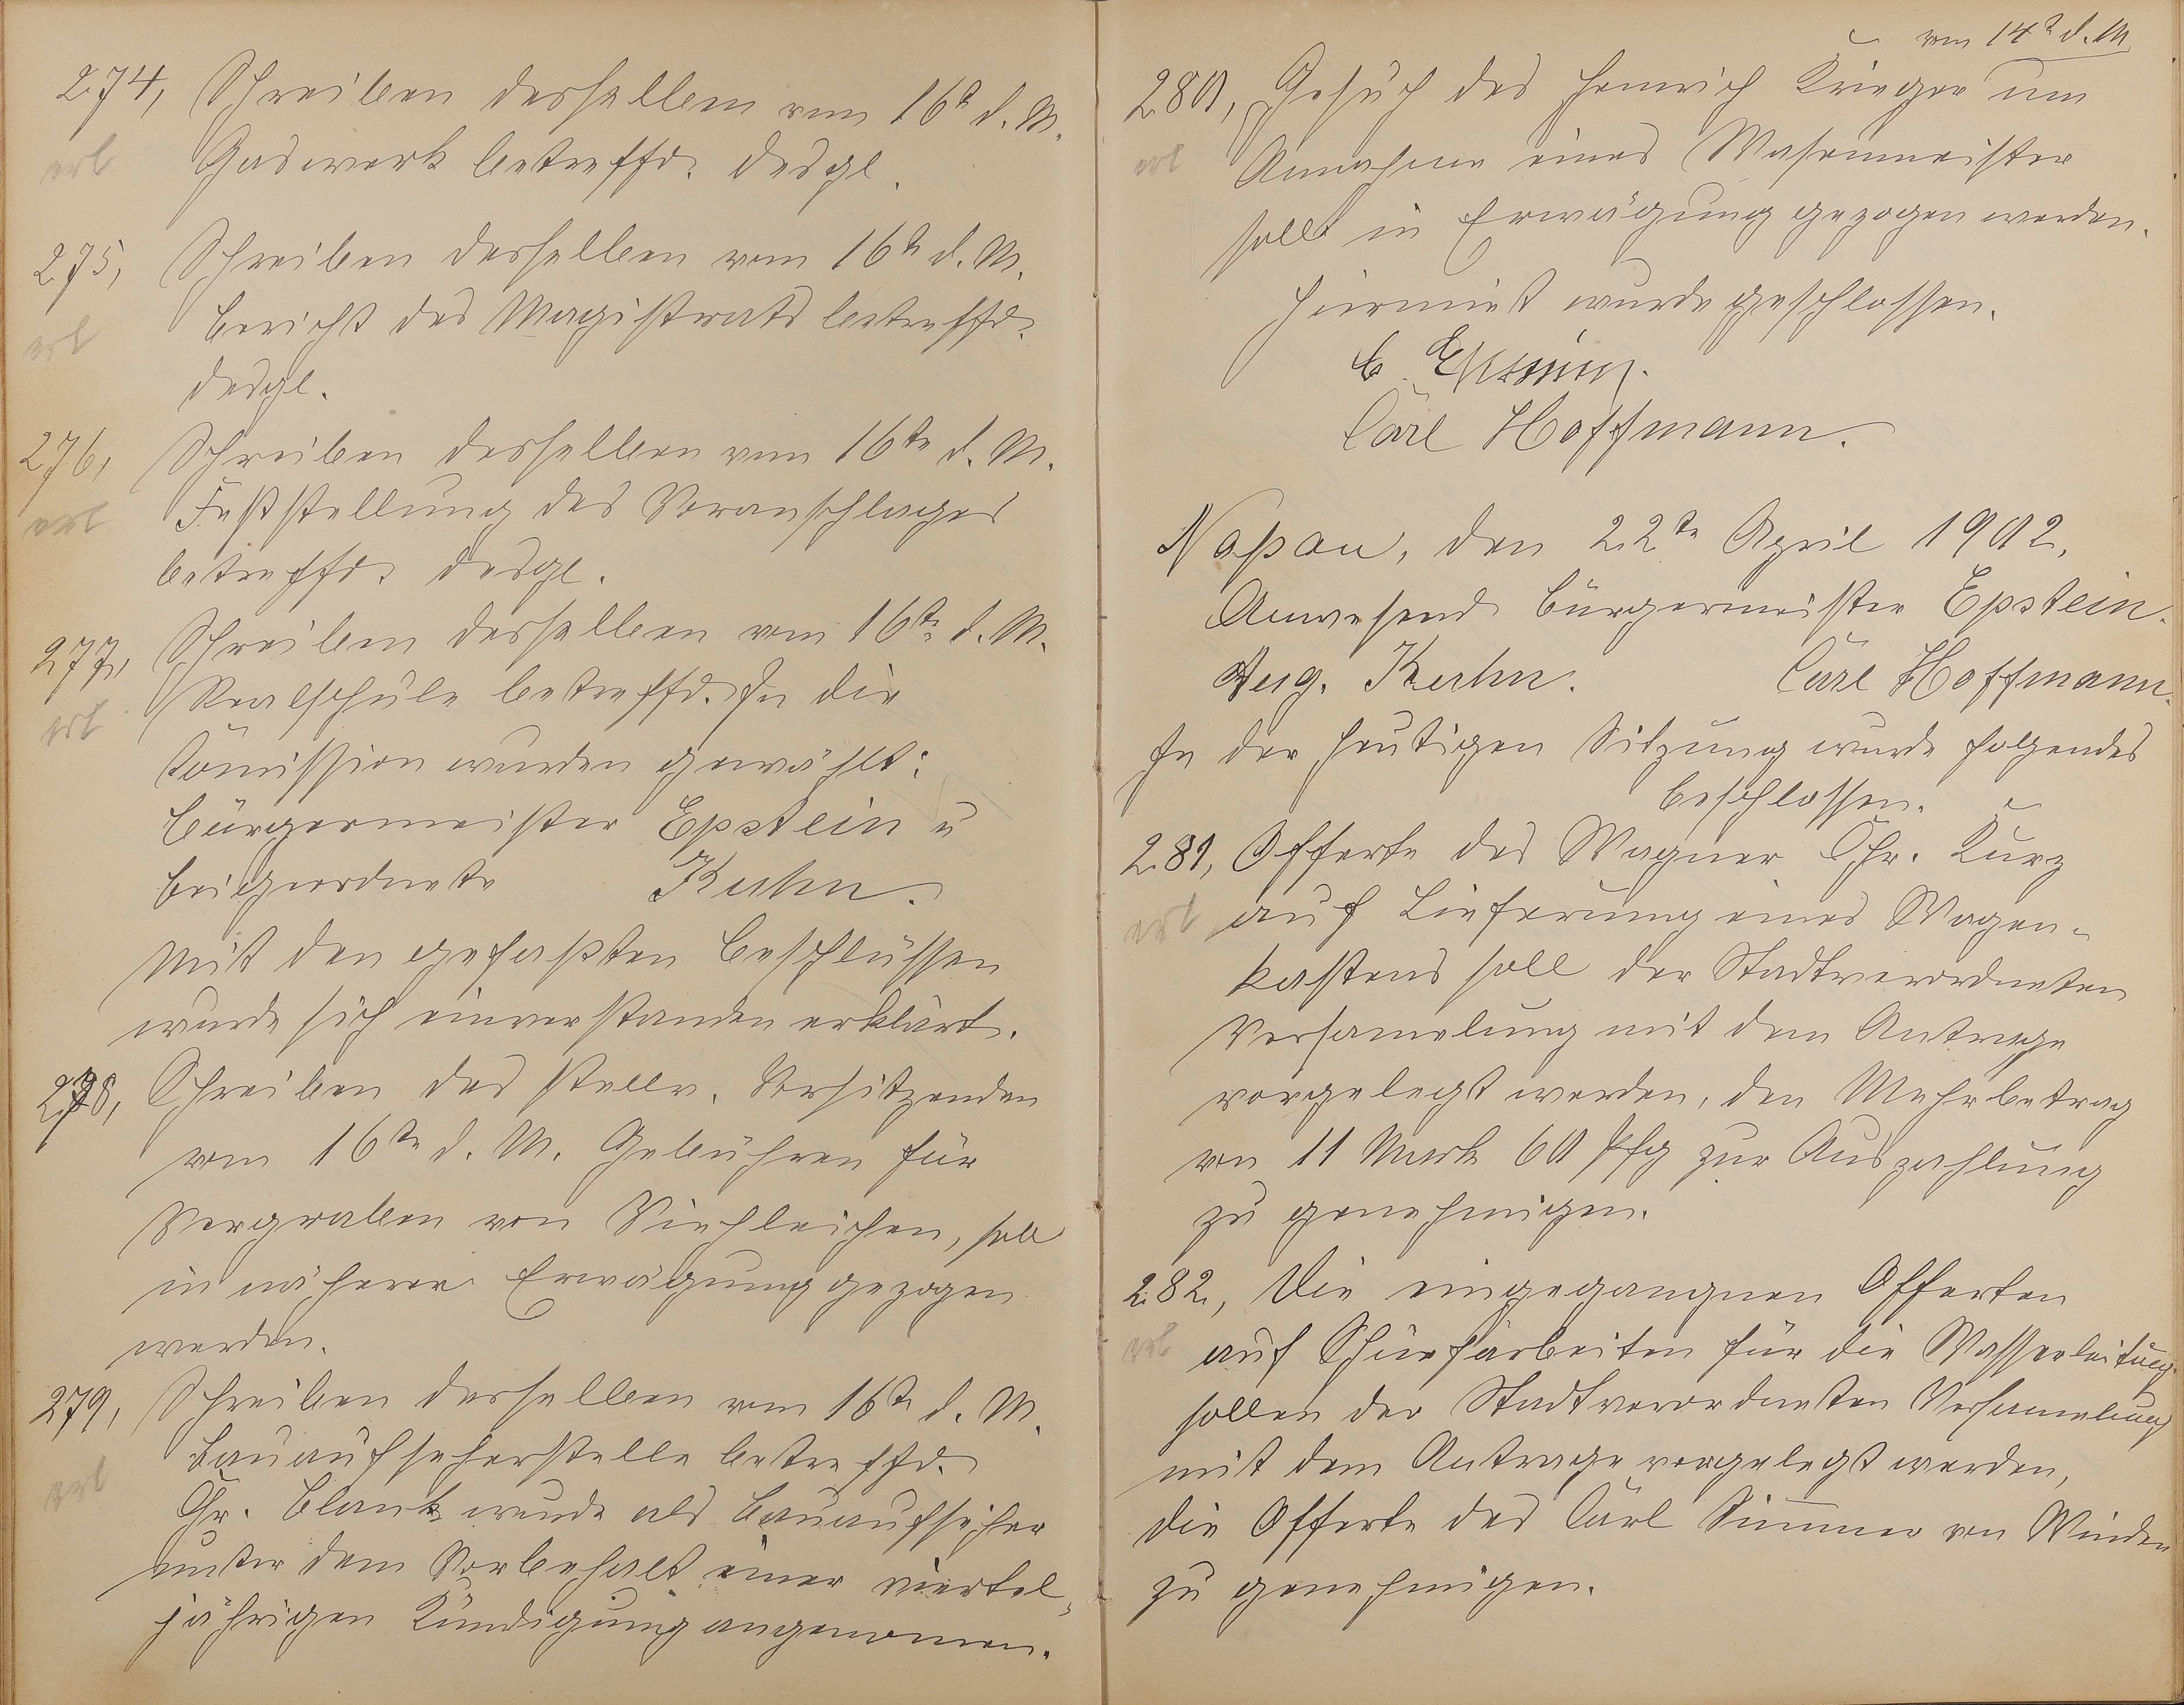 274, Schreiben desselben vom 16t d. M.
erl Gaswerk betreffd. desgl.
275, Schreiben desselben vom 16tn d. M.
Bericht des Magistrats betreffd.
erl
desgl.
276, Schreiben desselben vom 16tn d. M.
erl Feststellung des Voranschlages
betreffd. desgl.
277, Schreiben desselben vom 16tn d. M.
erl Realschule betreffd. In die
Comission wurden gewählt:
Bürgermeister Epstein u
Beigeordnete Kuhn.
Mit den gefaßten Beschlüssen
wurde sich einverstanden erklärt.
278, Schreiben des stellv. Vorsitzenden
vom 16tn d. M. Gebühren für
Vergraben von Viehleichen, soll
in näherer Erwägung gezogen
werden.
279, Schreiben desselben vom 16tn d. M.
erl Bauaufseherstelle betreffd.
Chr. Blank wurde als Bauaufseher
unter dem Vorbehalt einer viertel-
jährigen Kündigung angenomen.
vom 14t d. M
280, Gesuch des Heinrich Krieger um
erl Annahme eines Wasenmeister
sollt in Erwägung gezogen werden.
Hiermit wurde geschlossen.
Carl Hoffmann.
Naßau, den 22tn April 1902.
Anwesend Bürgermeister Epstein.
Aug. Kuhn. Carl Hoffmann.
In der heutigen Sitzung wurde folgendes
beschlossen.
281, Offerte des Wagner Chr. Kurz
erl auf Lieferung eines Wagen-
kastens soll der Stadtverordneten
Versamelung mit dem Antrage
vorgelegt werden, den Mehrbetrag
von 11 Mark 60 Pfg zur Auszahlung
zu genehmigen.
282, Die eingegangnen Offerten
erl auf Schürfarbeiten für die Wasserleitung
sollen der Stadtverordneten Versamelung
mit dem Antrage vorgelegt werden,
die Offerte des Carl Simmer von Winden
zu genehmigen.